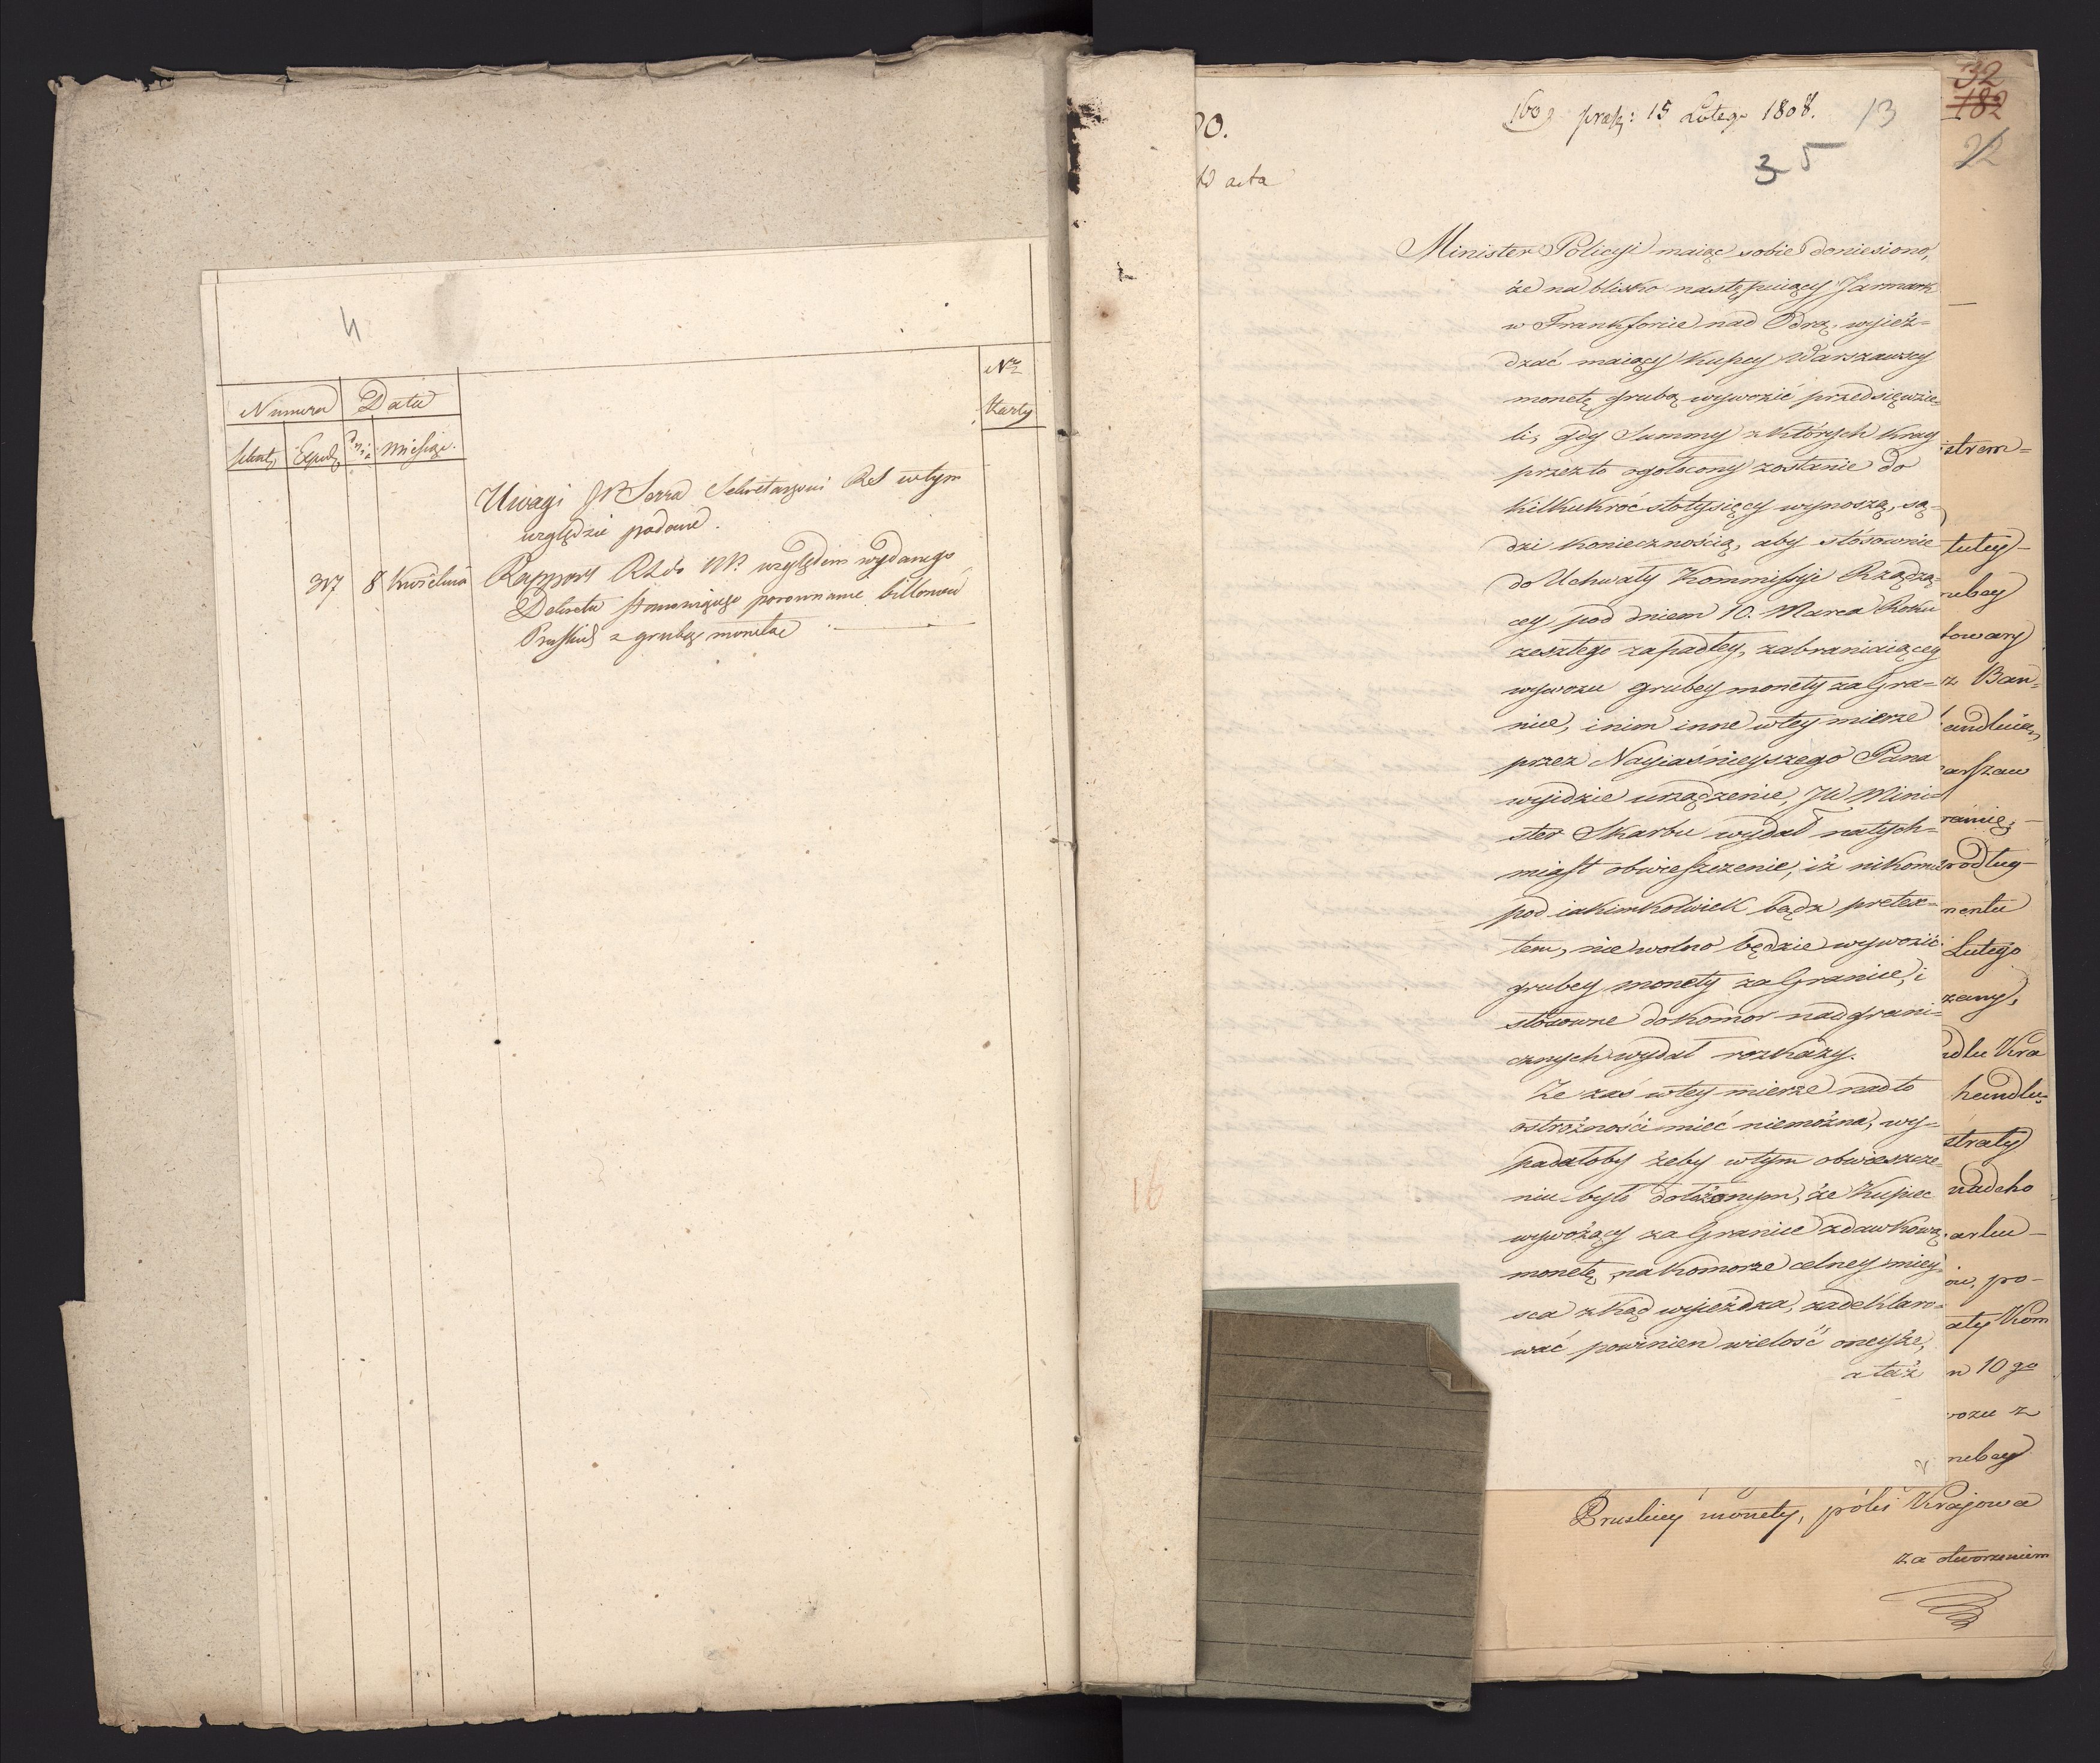 4
Numera Data
Nro
Karty
Dnia Miesiąc
Uwagi JP Serra Sekretarzowi RS wtym
względzie podane.
317 8 Kwietnia Rapport RS do NP. względem wydanego
Dekretu stanowiącego porownanie billonow
Pruskich z grubą monetą
16
00.
ad acta
160 præs: 15 Lutego 1808. 13
3 5
32
182
22
Minister Policyi maiąc sobie doniesiono,
że na blisko następuiący Jarmark
w Frankforcie nad Odrą, wyież=
dżać maiący Kupcy Warszawscy
monetę grubą wywozić przedsięwzie=
li, gdy Summy z których Kray
przez to ogołocony zostanie do
kilkukroć stotysięcy wynoszą, są=
dzi koniecznością, aby stósownie
do Uchwały Kommissyi Rządzą=
cey pod dniem 10. Marca Roku
zeszłego zapadłey, zabraniaiącey
wywozu grubey monety za Gra=
nice, i nim inne wtey mierze
przez Nayiaśnieyszego Pana
wyidzie urządzenie, JW Mini=
ster Skarbu wydał natych=
miast obwieszczenie, iż nikomu
pod iakimkolwiek bądz pretex=
tem, nie wolno będzie wywozić
grubey monety za Granice, i
stósowne do Komor nadgrani=
cznych wydał rozkazy.
Że zaś wtey mierze nadto
ostrożności mieć niemożna, wy=
padałoby żeby wtym obwieszcze=
niu było dołożonym, że Kupiec
wywożący za Granice zdawkową
monetę, na komorze celney miey=
sca zkąd wyieżdza, zadeklaro=
wać powinien wielość oneyże,
a taż
strem=
tutey-
rubey
towary
z Ban=
andlu
arszaw
ranie,
rodług-
mentu
Lutego
zany,
ndlu Kra
handlu
straty
nadcho
arku-
ów, po-
ały Kom
n 10go
wozu z
rubey
Pruskiey monety, póki Krajowa
za otworzeniem